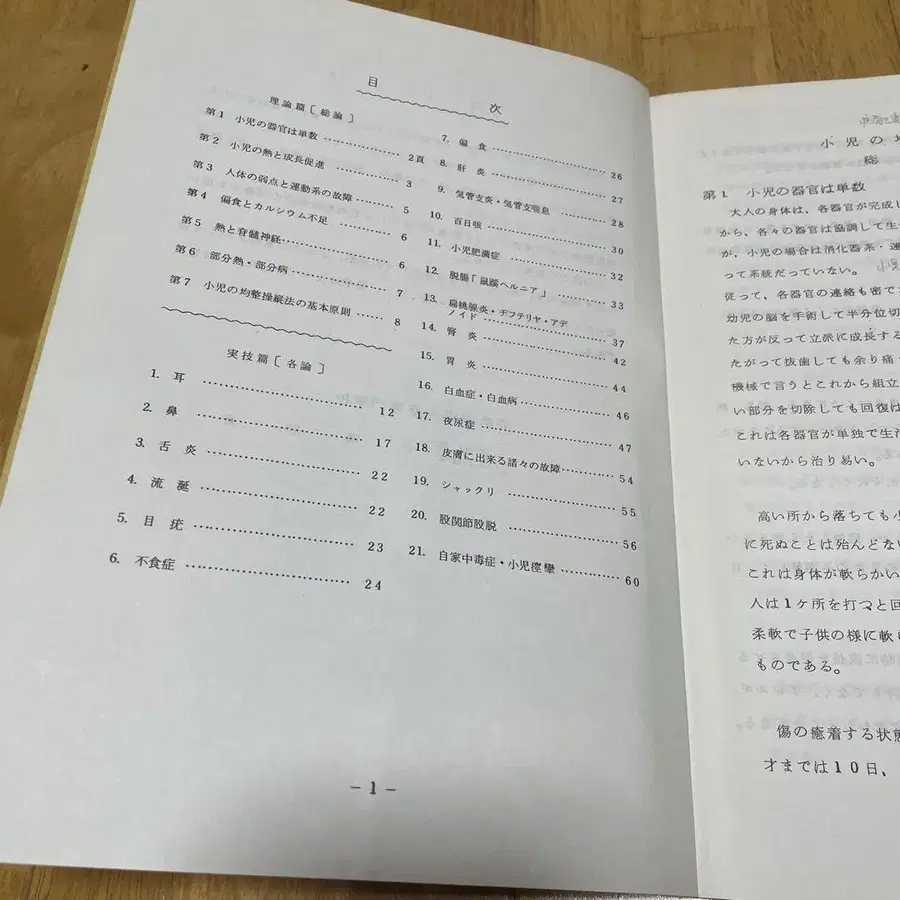 目次
理論篇〔総論〕
第1 小児の器官は単数 ………… 2頁
第2 小児の熱と成長促進 ………… 3
第3 人体の弱点と運動系の故障 ………… 5
第4 偏食とカルシウム不足 ………… 6
第5 熱と脊髄神経 ………… 6
第6 部分熱・部分病 ………… 7
第7 小児の均整操縦法の基本原則 ………… 8
実技篇〔各論〕
1. 耳 ………… 12
2. 鼻 ………… 17
3. 舌炎 ………… 22
4. 流涎 ………… 22
5. 目疣 ………… 23
6. 不食症 ………… 24
7. 偏食 ………… 26
8. 肝炎 ………… 27
9. 気管支炎・気管支喘息 ………… 28
10. 百日咳 ………… 30
11. 小児肥満症 ………… 32
12. 脱腸「鼠蹊ヘルニア」 ………… 33
13. 扁桃腺炎・ヂフテリヤ・アデ
ノイド ………… 37
14. 腎炎 ………… 42
15. 胃炎 ………… 44
16. 白血症・白血病 ………… 46
17. 夜尿症 ………… 47
18. 皮膚に出来る諸々の故障 ………… 54
19. シャックリ ………… 55
20. 股関節股脱 ………… 56
21. 自家中毒症・小児痙攣 ………… 60
－1－
小児の
総
第1 小児の器官は単数
大人の身体は、各器官が完成し
から、各々の器官は協調して生
が、小児の場合は消化器系・運
って系統だっていない。
従って、各器官の連絡も密で
幼児の脳を手術して半分位切
た方が反って立派に成長する
たがって抜歯しても余り痛
機械で言うとこれから組立
い部分を切除しても回復は
これは各器官が単独で生活
いないから治り易い。
高い所から落ちても
に死ぬことは殆んどない
これは身体が軟らかい
人は1ケ所を打つと回
柔軟で子供の様に軟ら
ものである。
傷の癒着する状態
才までは10日、